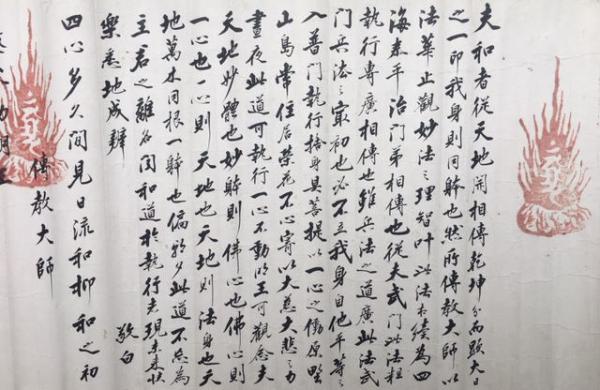 夫和者従天地開相傳乾坤分而顕大日
之一印我身則同躰也然所傳教大師以
法華止観妙法之理智叶此法相續為四
海泰平治門弟相傳也従夫武門此法粗
執行専廣相傳也雖兵法之道廣此法武
門兵法之最初也必不立我身自他平等之
入普門執行捨身具菩提以一心之
山烏常住居荣花不心寄以大慈大悲之力
晝夜此道可執行一心不動明王可觀念夫
天地妙體也妙躰則佛心也佛心則
一心也一心則天地也天地則法身也天
地萬木同根一躰也偏於此道不忘為
主君之離名聞和道於執行者現未来快
樂悉地成辨
敬白
四心多久間見日流和柳和之初
傳教大師
不動明王